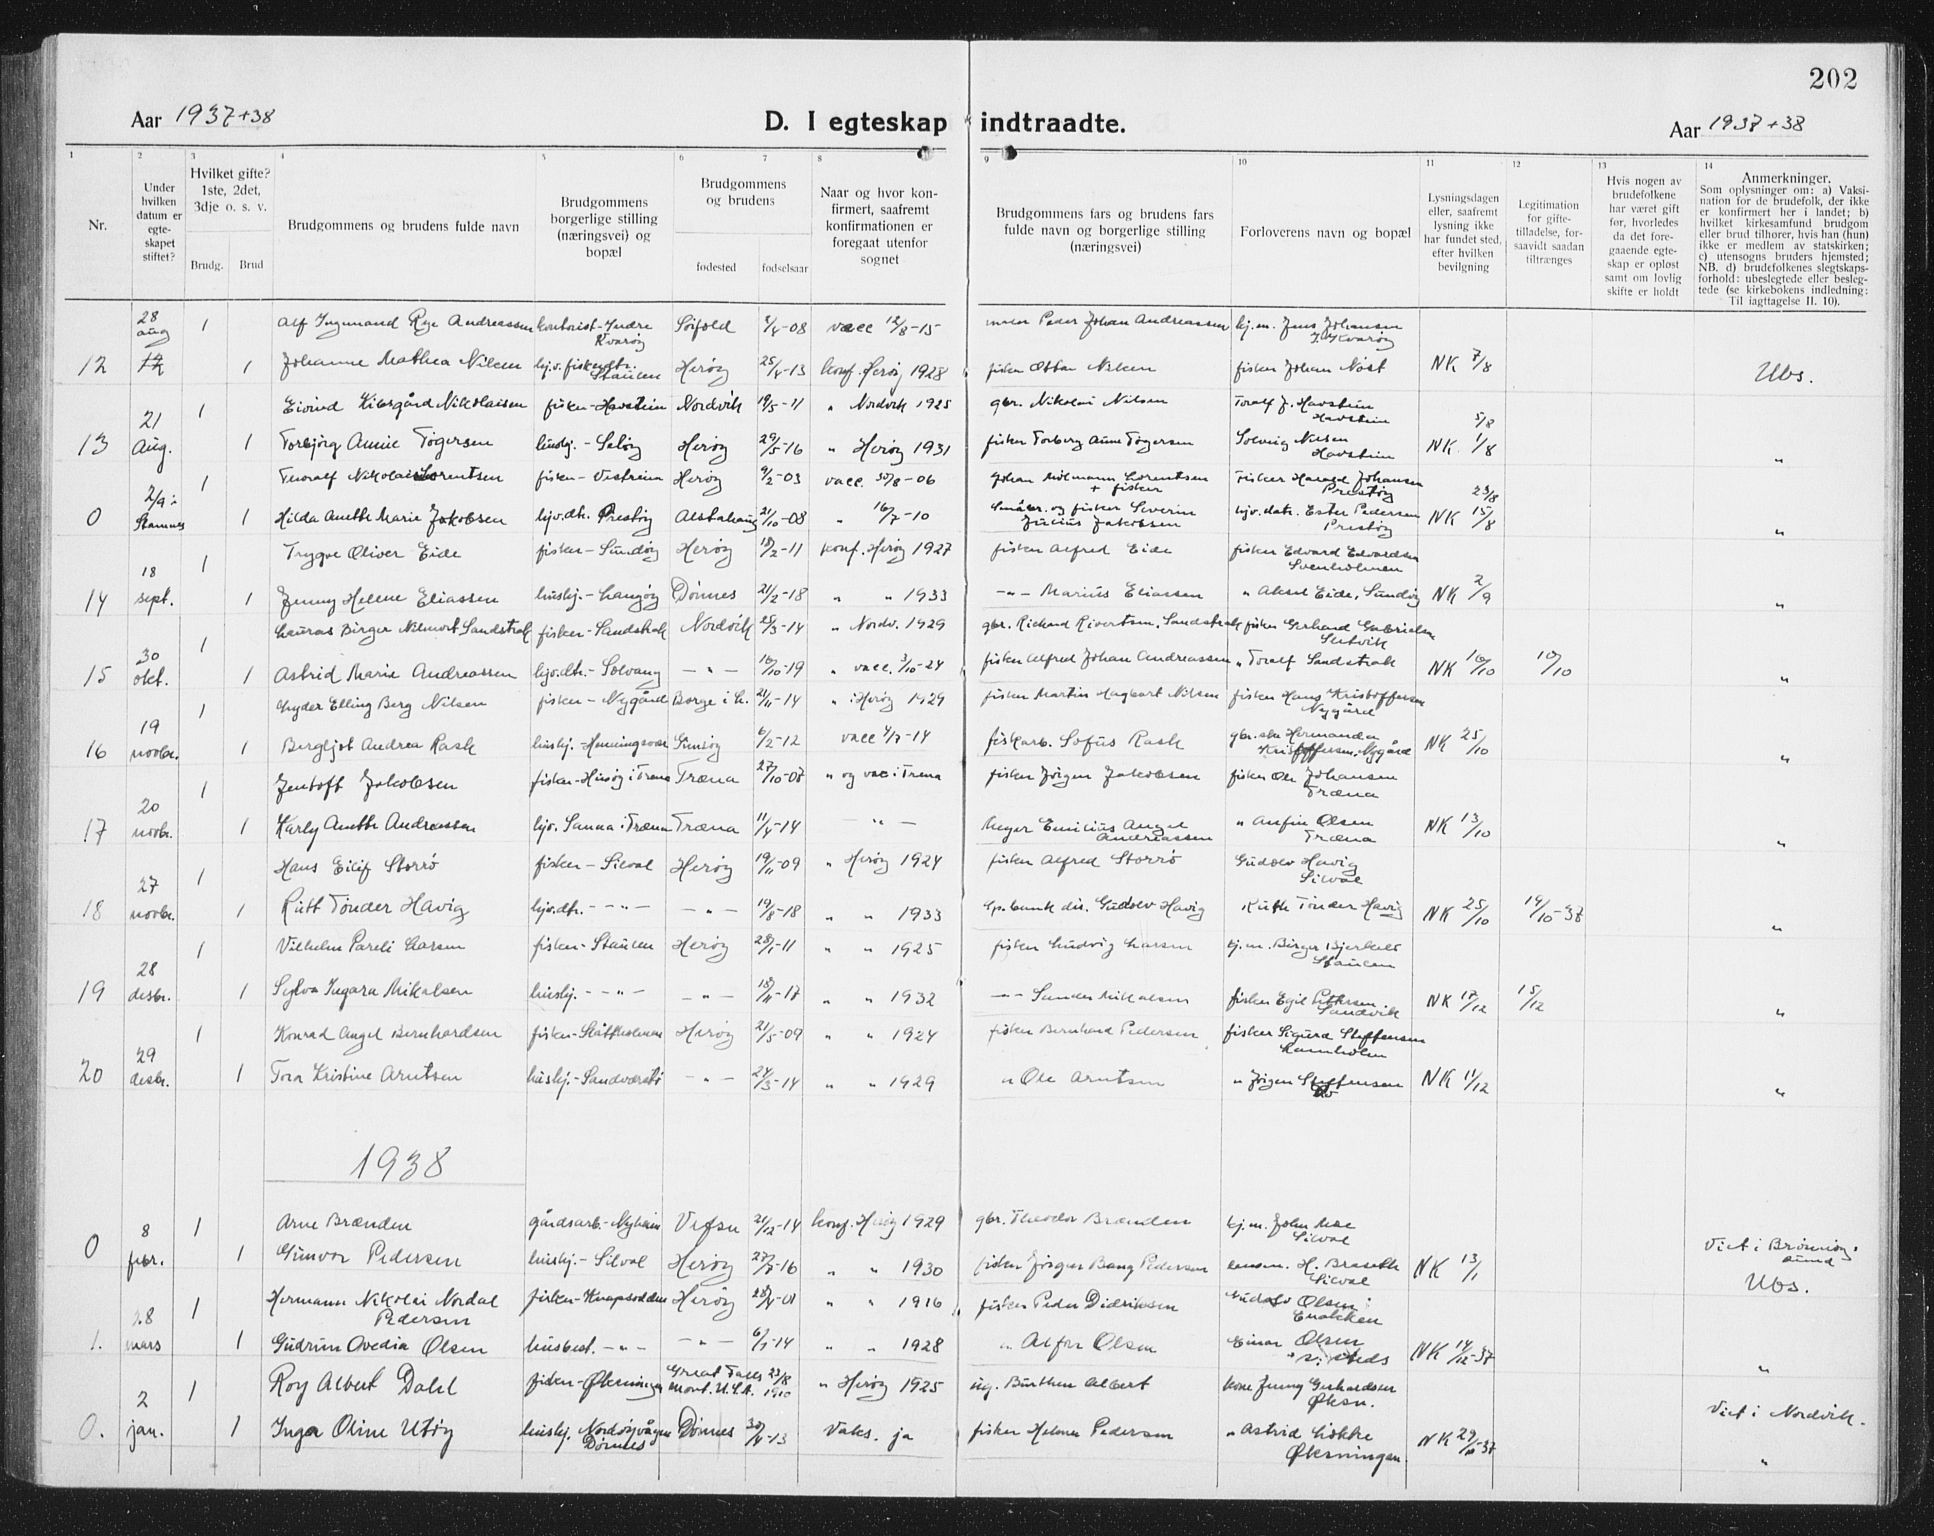 202
Aar 1937+38
D. I egteskap indtraadte.
Aar 1937+38
1 2 3 4 5 6 7 8 9 10 11 12 13 14
Nr.
Under hvilken datum er egte-skapet stiftet?
Hvilket gifte? 1ste, 2det, 3dje o. s. v.
Brudg. Brud
Brudgommens og brudens fulde navn
Brudgommens borgerlige stilling (næringsvei) og bopæl
Brudgommens og brudens
fødested fødselsaar
Naar og hvor kon-firmert, saafremt konfirmationen er foregaat utenfor sognet
Brudgommens fars og brudens fars fulde navn og borgerlige stilling (næringsvei)
Forloverens navn og bopæl
Lysningsdagen eller, saafremt lysning ikke har fundet sted, efter hvilken bevilgning
Legitimation for gifte-tilladelse, for-saavidt saadan tiltrænges
Hvis nogen av brudefolkene har været gift før, hvorledes da det fore-gaaende egte-skap er opløst samt om lovlig skifte er holdt
Anmerkninger.
Som oplysninger om: a) Vaksi-nation for de brudefolk, der ikke er konfirmert her i landet; b) hvilket kirkesamfund brudgom eller brud tilhører, hvis han (hun) ikke er medlem av statskirken; c) utensogns bruders hjemsted; NB. d) brudefolkenes slegtskaps-forhold: ubeslegtede eller besleg-tede (se kirkebokens indledning: Til iagttagelse II. 10).
28 aug 1 Alf Ingemand Rye Andreassen kontorist - Indre Kvarøy Sørfold 2/4-08 vacc 12/8-15 Peder Johan Andreassen kj.m. Jens Johansen I. Kvarøy
12 1 Johanne Mathea Nilsen hjv. fiskerdtr. Staulen Herøy 25/4-13 konf. Herøy 1928 fisker Ottar Nilsen fisker Johan Nøst NK 7/8 Ubs.
21 1 Eivind Kibsgård Nikolaisen fisker - Havstein Nordvik 19/5-11 " Nordvik 1925 gbr. Nikolai Nilsen Toralf J. Havstein Havstein 5/8
13 Aug. 1 Torbjørg Annie Tøgersen hushj. - Seløy Herøy 29/5-16 " Herøy 1931 fisker Torberg Aune Tøgersen Solveig Nilsen Havstein NK 1/8 "
2/9 i 1 Thoralf Nikolai Lorentsen fisker - Vestrein Herøy 9/2-03 vacc. 30/8-06 Johan Holmann Lorentsen + fisker Fisker Harald Johansen Prestøy 23/8
0 Stamnes 1 Hilda Anette Marie Jakobsen hjv.dtr. Prestøy Alstahaug 21/10-08 " 16/7-10 Småbr. og fisker Severin Julius Jakobsen hjv. datr. Ester Pedersen Prestøy NK 15/8 "
18 1 Trygve Oliver Eide fisker - Sundøy Herøy 18/2-11 konf. Herøy 1927 fisker Alfred Eide fisker Edvard Edvardsen Svenholmen
14 sept. 1 Jenny Helene Eliassen hushj. - Langøy Dønnes 21/2-18 " " 1933 -"- Marius Eliassen " Aksel Eide, Sundøy NK 2/9 "
30 1 Lauras Birger Nilmort Sandstrak fisker - Sandstrak Nordvik 25/3-14 " Nordv. 1929 gbr. Rickard Rivertsen, Sandstrak fisker Gerhard Gabrielsen Seitvik
15 okt. 1 Astrid Marie Andreassen hjv.dtr. - Solvang -"- 16/10-19 " vacc. 3/10-24 fisker Alfred Johan Andreassen " Toralf Sandstrak NK 16/10 10/10 "
19 1 Lyder Elling Berg Nilsen fisker - Nygård Borge i L. 21/11-14 " i Herøy 1929 fisker Martin Hagbart Nilsen fisker Hans Kristoffersen Nygård
16 novbr. 1 Bergljot Andrea Rask hushj. - Henningsvær Gimsøy 6/2-12 vacc 4/7-14 fiskarb. Sofus Rask gbr. Hermander Kristoffersen, Nygård NK 25/10 "
20 1 Jentoft Jakobsen fisker - Husøy i Træna Træna 27/10-07 " og vac i Træna fisker Jørgen Jakobsen fisker Ole Johansen Træna
17 novbr. 1 Karly Anette Andreassen hjv. Sanna i Træna Træna 11/4-14 -"- Meyer Emilius Angel Andreassen " Anfin Olsen Træna NK 13/10 "
27 1 Hans Eilif Storrø fisker - Silval Herøy 19/11-09 " Herøy 1924 fisker Alfred Storrø Gudolv Havig Silval
18 novbr. 1 Rutt Tønder Havig hjv.dtr. -"- -"- 19/8-18 " " 1933 Sp.bank dir. Gudolv Havig Ruth Tønder Havig NK 25/10 19/10-37 "
28 1 Vilhelm Pareli Larsen fisker - Staulen Herøy 28/1-11 " " 1925 fisker Ludvig Larsen kj.m. Birger Bjerkeli Staulen
19 desbr. 1 Sylva Ingara Mikalsen hushj. -"- -"- 18/11-17 " " 1932 -"- Sander Mikalsen fisker Egil Pettersen Sandvik NK 17/12 15/12 "
29 1 Konrad Angel Bernhardsen fisker - Slåttholmen Herøy 21/5-09 " " 1924 fisker Bernhard Pedersen fisker Sigurd Steffensen Lamholm
20 desbr. 1 Tora Kristine Arntsen hushj. - Sandværstø -"- 24/3-14 " " 1929 " Ole Arntsen " Jørgen Steffensen do NK 11/12 "
1938
8 1 Arne Brænden gårdsarb. - Nyheim Vefsn 21/12-14 konf. Herøy 1929 gbr. Theodor Brænden kj.m. John Moe Silval
0 febr. 1 Gunvor Pedersen hushj. - Silval Herøy 27/7-16 " " 1930 fisker Jørgen Bang Pedersen lensm. H. Braseth Silval NK 13/1 Viet i Brønnøysund Ubs.
28 1 Hermann Nikolai Nordal Pedersen fisker - Knapsodden Herøy 28/4-01 " " 1916 fisker Peder Didriksen Olsen
1. mars 1 Gudrun Ovedia Olsen husbest. -"- -"- 6/1-14 " " 1928 " Alfon Olsen Einar Olsen s. steds NK 14/12-37 "
2 1 Roy Albert Dahl fisker - Øksningen Great Falls Mont. U.S.A. 23/8 1910 " Herøy 1925 ug. Burthen Albert kone Jenny Gerhardsen Øksn.
0. jan. 1 Inga Oline Utøy hushj. Nordøyvågen Dønnes Dønnes 30/4-13 Vaks. ja fisker Helmer Pedersen " Astrid Løkke Øksningan. NK 29/11-37 Viet i Nordvik. "